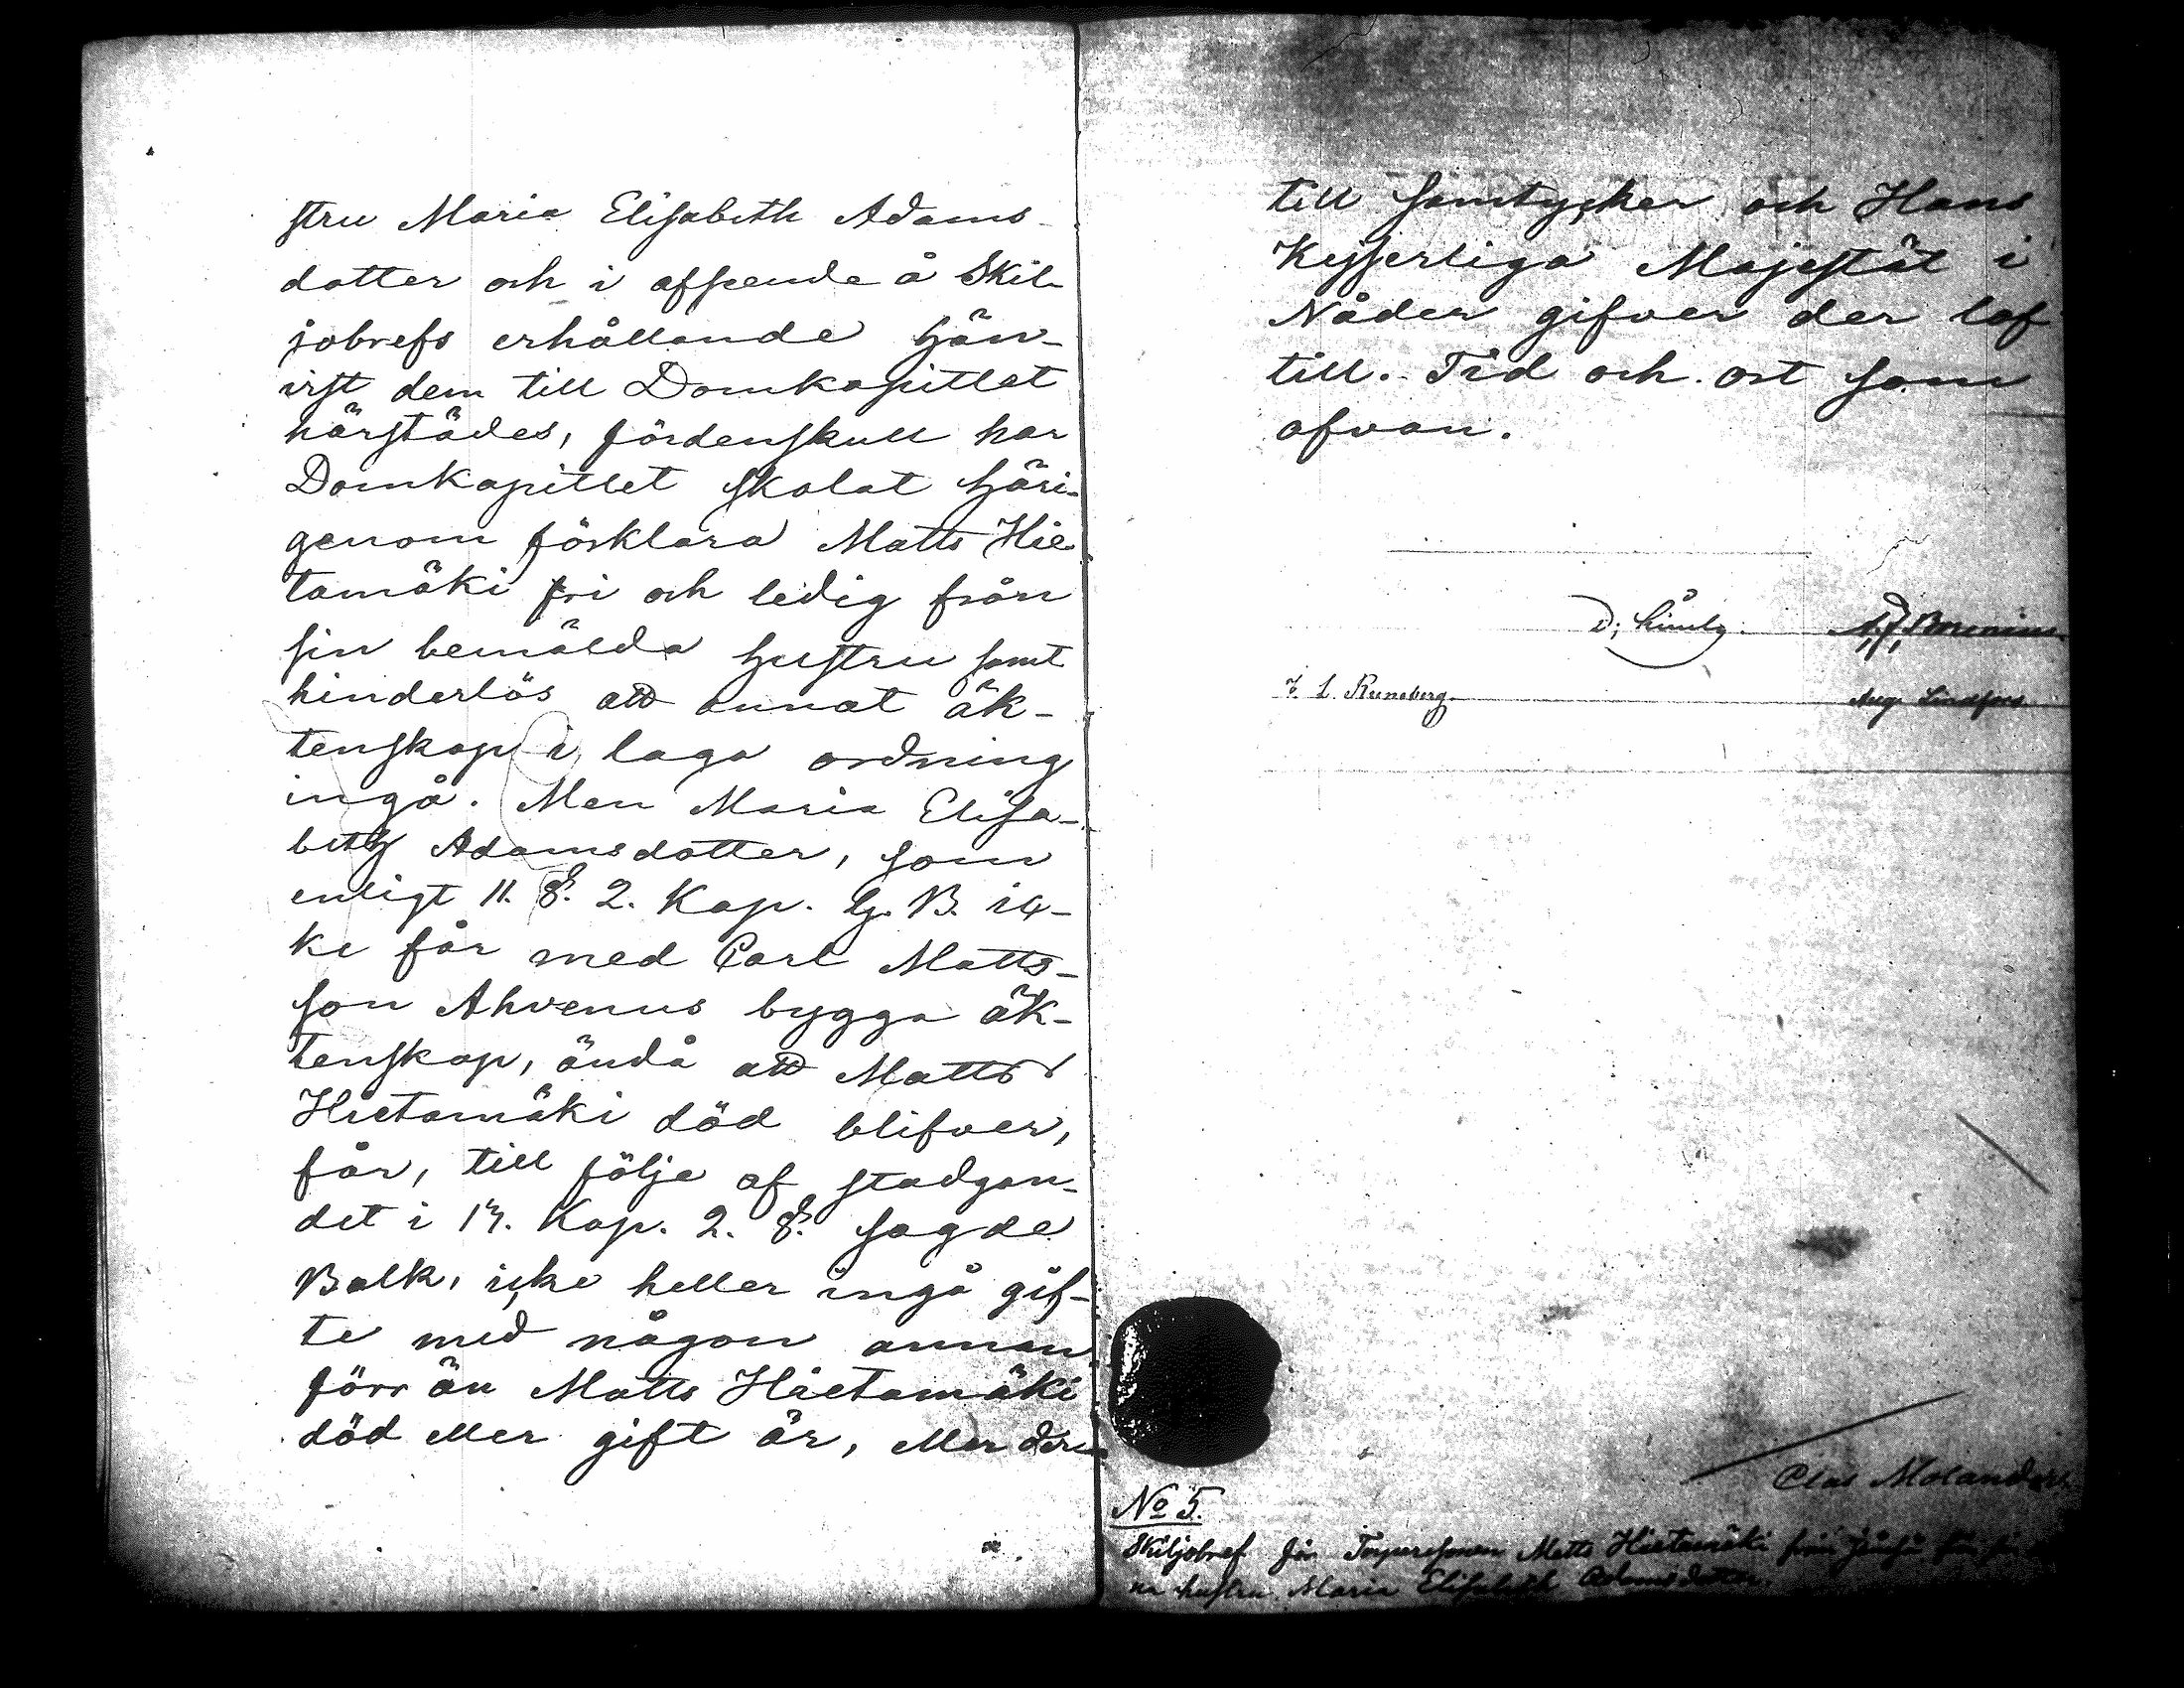 stru Maria Elisabeth Adams-
dotter och i afseende å Skil-
jobrefs erhållande hän-
vist dem till Domkapitlet
härstädes, fördenskull har
Domkapitlet skolat häri-
genom förklara Matts Hie-
tamäki fri och ledig från
sin bemälda hustru samt
hinderlös att annat äk-
tenskap i laga ordning
ingå. Men Maria Elisa-
beth Adamsdotter, som
enligt 11. §. 2. Kap. G. B. ic-
ke får med Carl Matts-
son Ahvenus bygga äk-
tenskap, ändå att Matts
Hietamäki död blifver,
får, till följe af stadgan-
det i 13. Kap. 2. §. sagde
Balk, icke heller ingå gif-
te med någon annan
förr än Matts Hietamäki
död eller gift är, eller der-
till samtycker och Hans
Kejserliga Majestät i
Nåder gifver der lof
till. Tid och ort som
ofvan.
A. J. Borenius
J. L. Runeberg
Aug. Lindfors
Clas Molander
No 5.
Skiljobref för Matts Hietamäki från
na hustru Maria Elisabeth Adamsdotter.